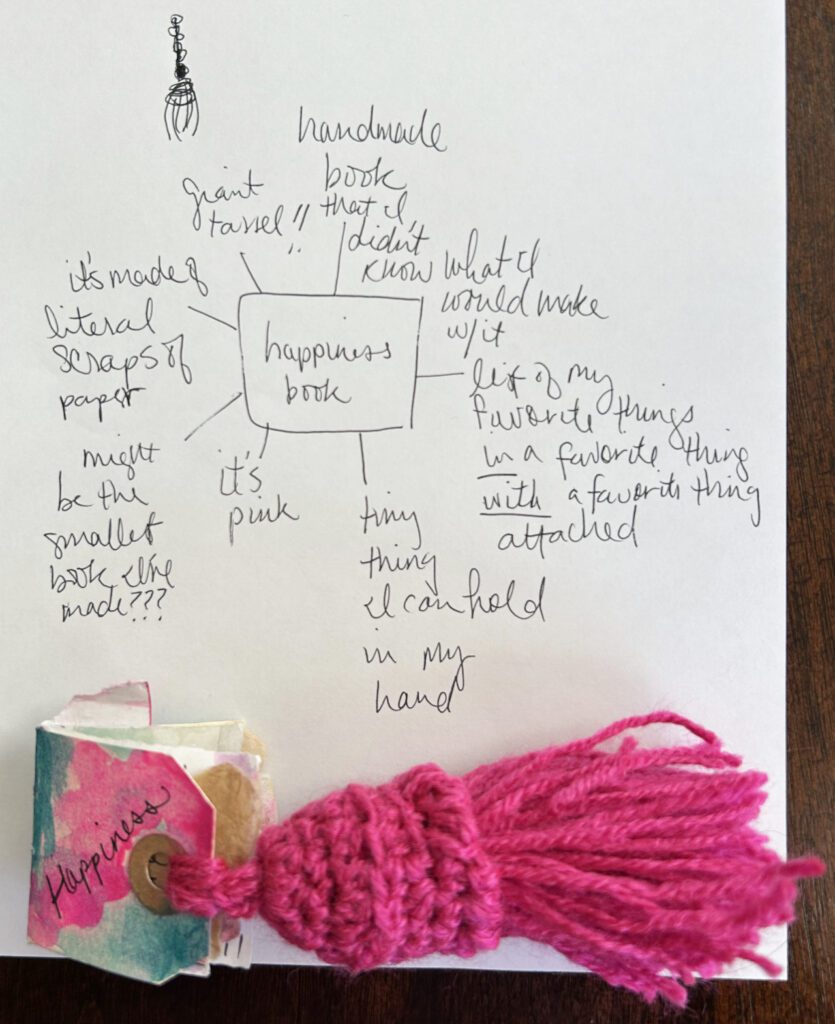 giant
tassel!!
handmade
book
that I
didn't
know what I
would make
w/it
it's made of
literal
scraps of
paper
happiness
book
list of my
favorite things
in a favorite thing
with a favorite thing
attached
might
be the
smallest
book I've
made???
it's
pink
tiny
thing
I can hold
in my
hand
Happiness